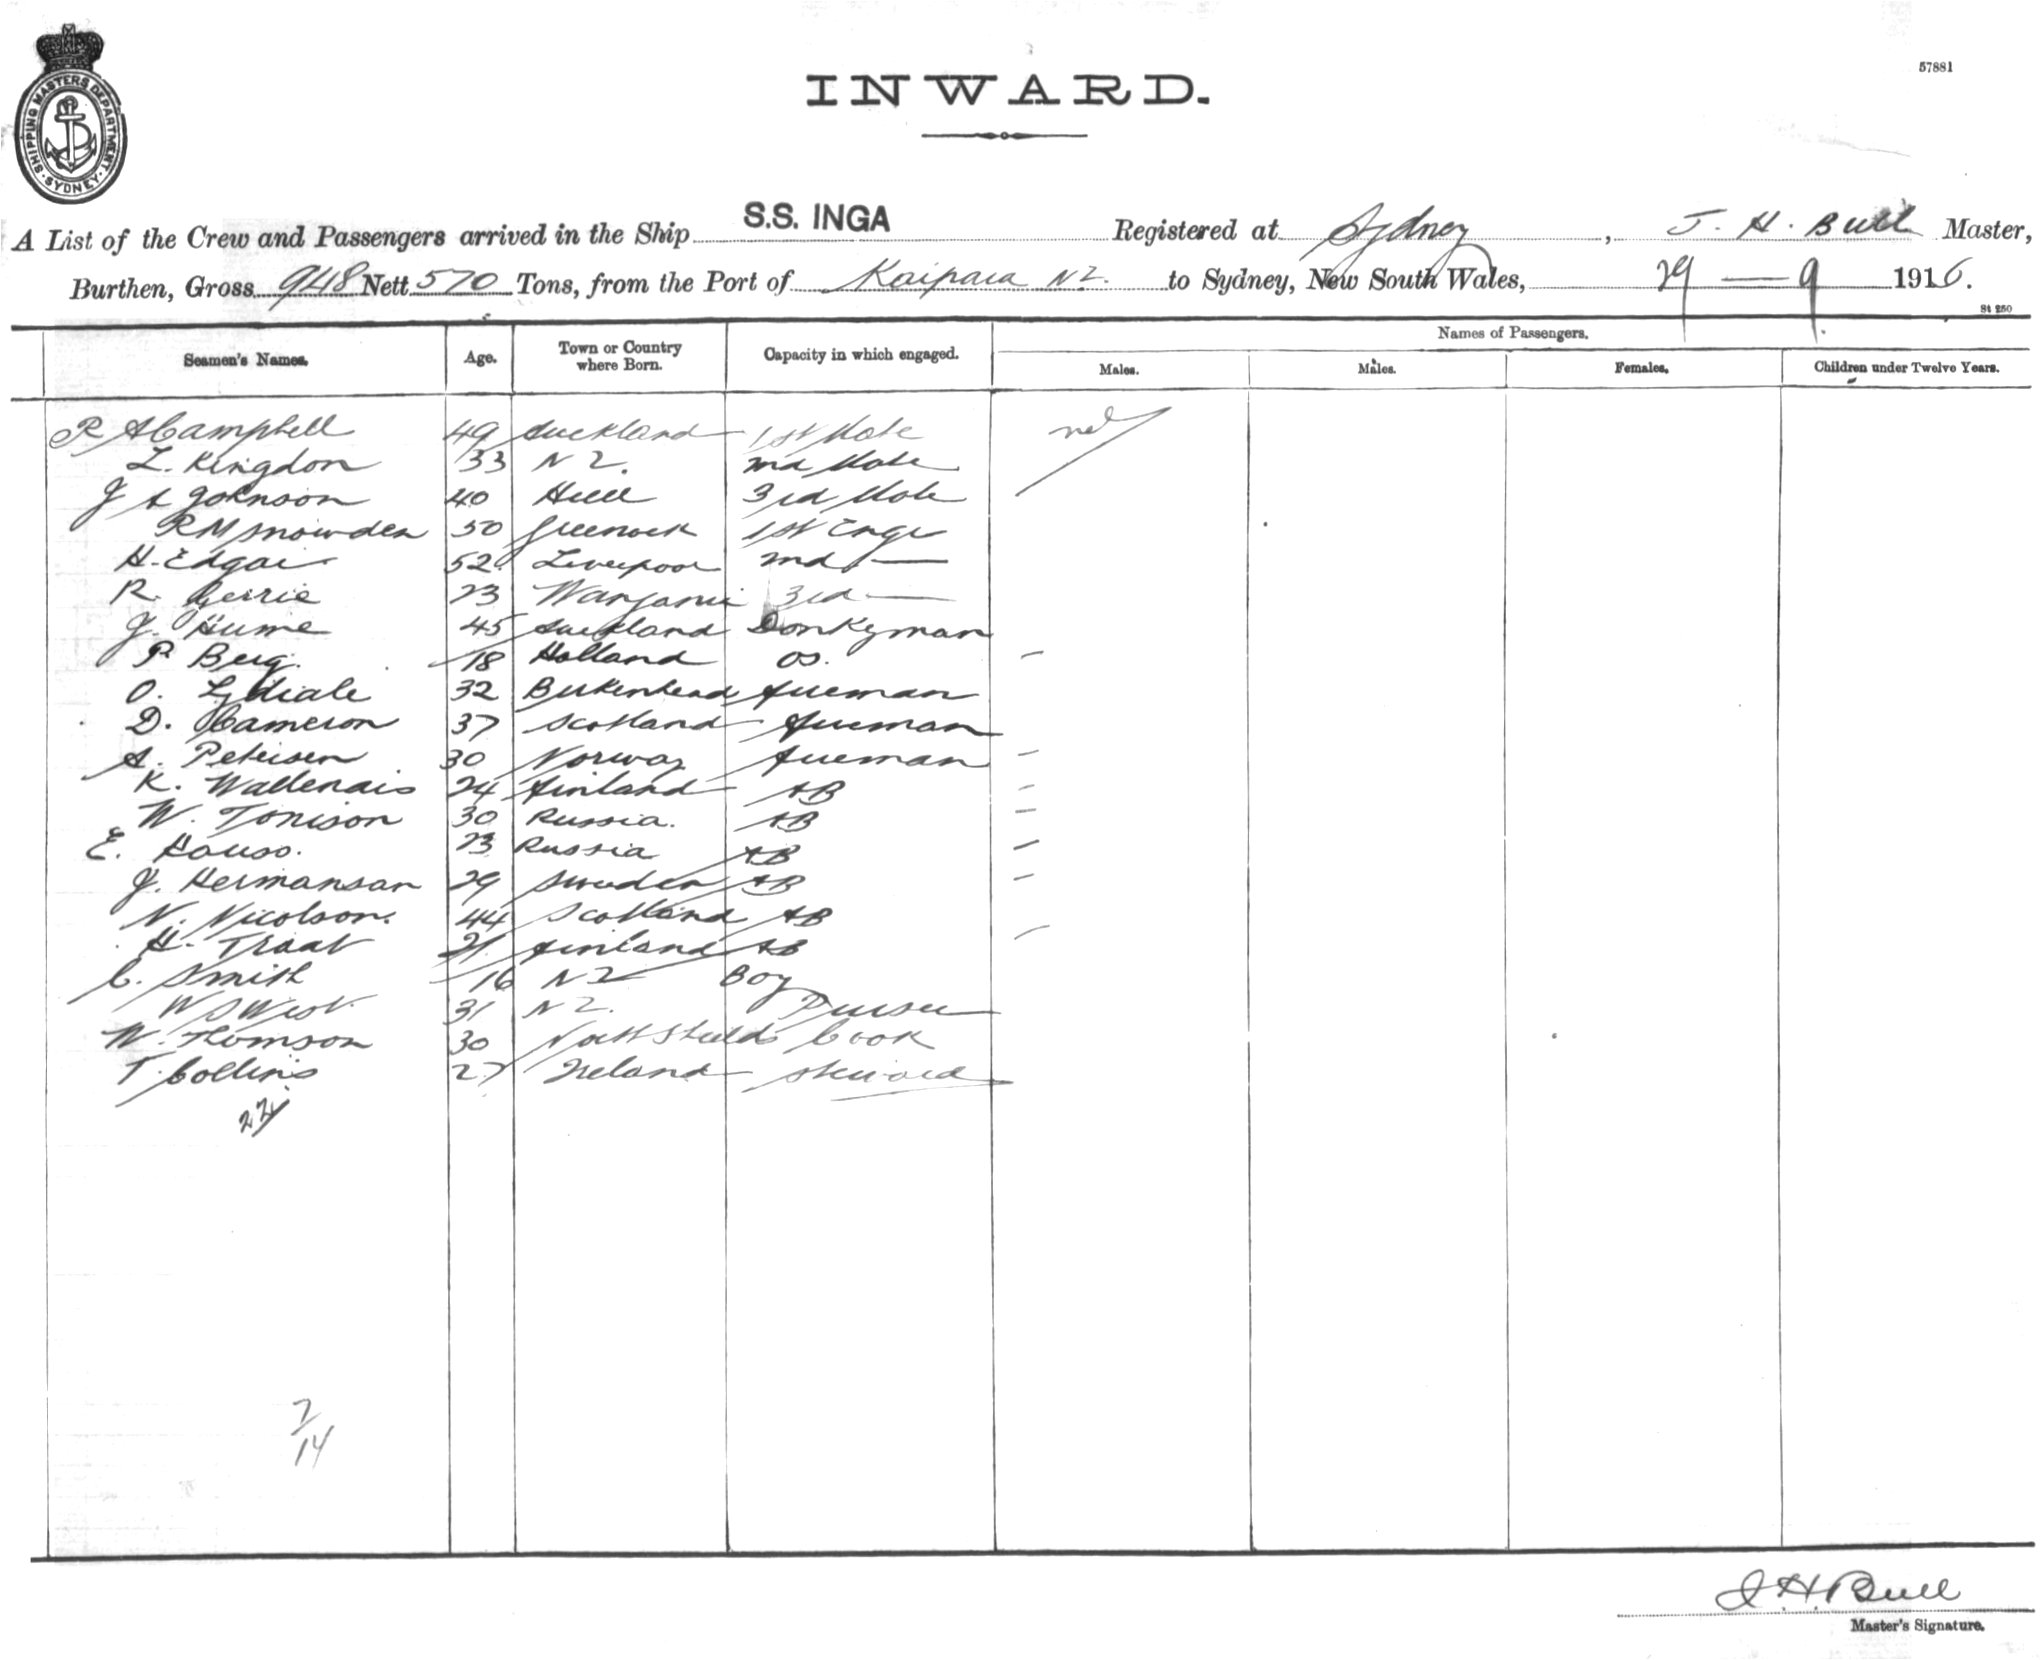 57881
INWARD.
SHIPPING MASTERS DEPARTMENT. SYDNEY.
A List of the Crew and Passengers arrived in the Ship S.S. INGA Registered at Sydney, J. H. Bull Master,
Burthen, Gross 948 Nett 570 Tons, from the Port of Kaipara NZ. to Sydney, New South Wales, 29 — 9 1916.
St 250
Names of Passengers.
Seamen's Names. Age. Town or Country where Born. Capacity in which engaged. Males. Males. Females. Children under Twelve Years.
R A Campbell 49 Auckland 1st Mate
L. Kingdon 33 NZ. 2nd Mate
J A Johnson 40 Hull 3rd Mate
R M Snowden 50 Greenock 1st Engr
H. Edgar 52 Liverpool 2nd —
R. Gerrie 23 3rd —
J. Hume 45 Auckland Donkyman
P. Berg. 18 Holland OS.
O. Lydiate 32 Birkenhead Fireman
D. Cameron 37 Scotland Fireman
A. Petersen 30 Norway Fireman
K. Wallenais 24 Finland AB
W. Tonison 30 Russia. AB
E. 23 Russia AB
J. Hermansan 29 Sweden AB
N. Nicolson. 44 Scotland AB
H. Traat 21 Finland AB
C. Smith 16 NZ Boy
W S West. 31 NZ. Purser
W. Thomson 30 North Shields Cook
T. Collins 27 Ireland Steward
22
7/14
J. H. Bull
Master's Signature.